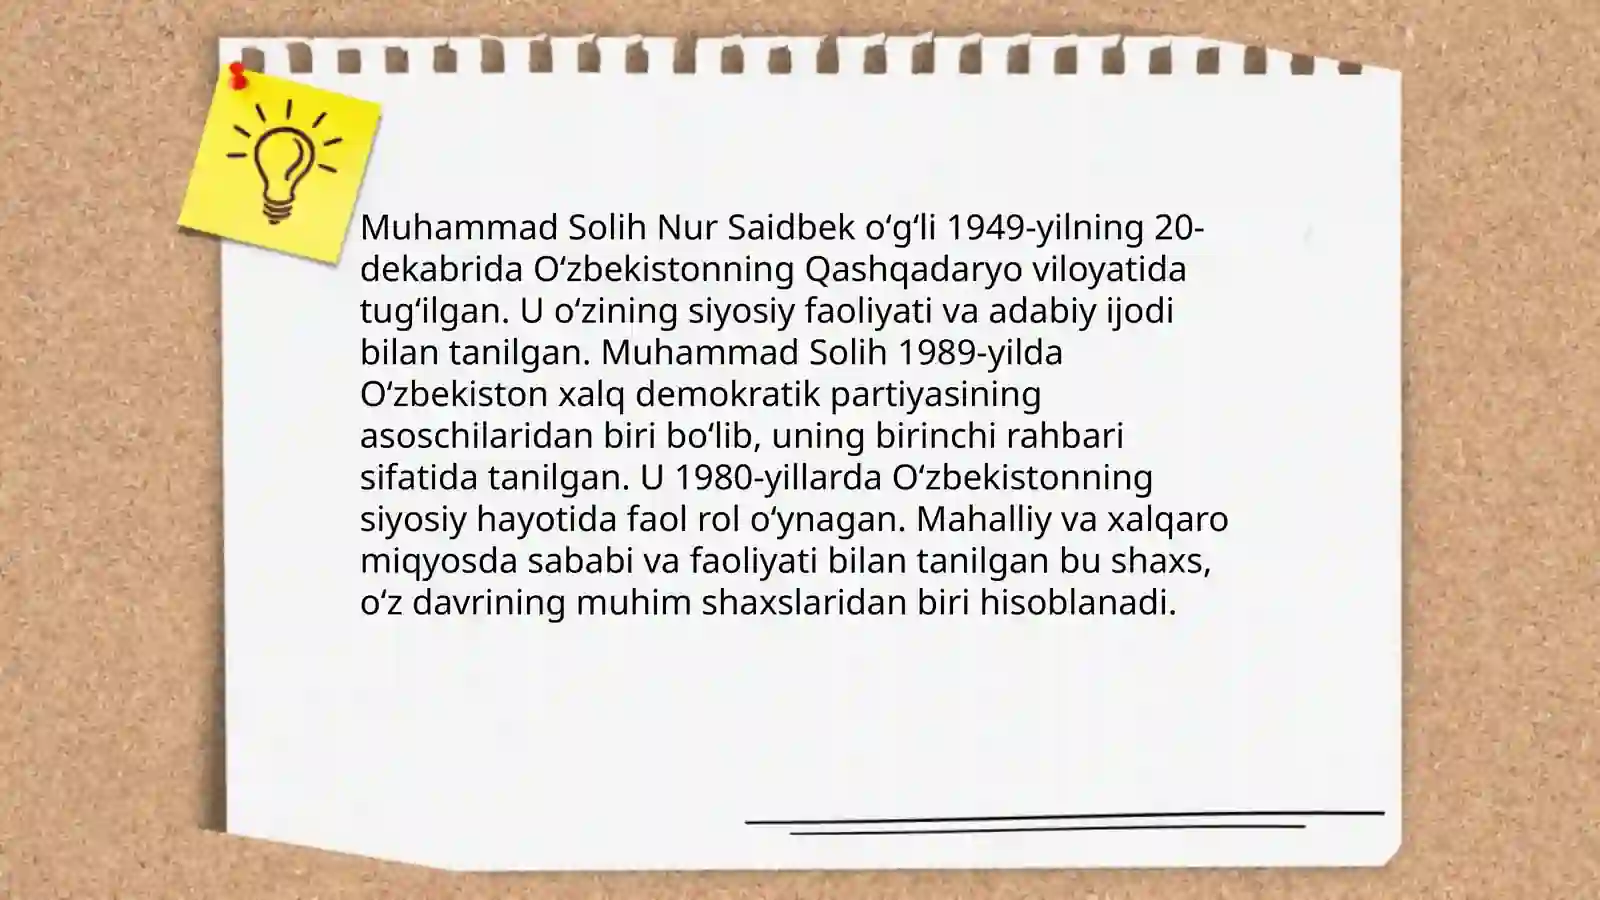 Muhammad Solih Nur Saidbek oʻgʻli 1949-yilning 20-
dekabrida Oʻzbekistonning Qashqadaryo viloyatida
tugʻilgan. U oʻzining siyosiy faoliyati va adabiy ijodi
bilan tanilgan. Muhammad Solih 1989-yilda
Oʻzbekiston xalq demokratik partiyasining
asoschilaridan biri boʻlib, uning birinchi rahbari
sifatida tanilgan. U 1980-yillarda Oʻzbekistonning
siyosiy hayotida faol rol oʻynagan. Mahalliy va xalqaro
miqyosda sababi va faoliyati bilan tanilgan bu shaxs,
oʻz davrining muhim shaxslaridan biri hisoblanadi.